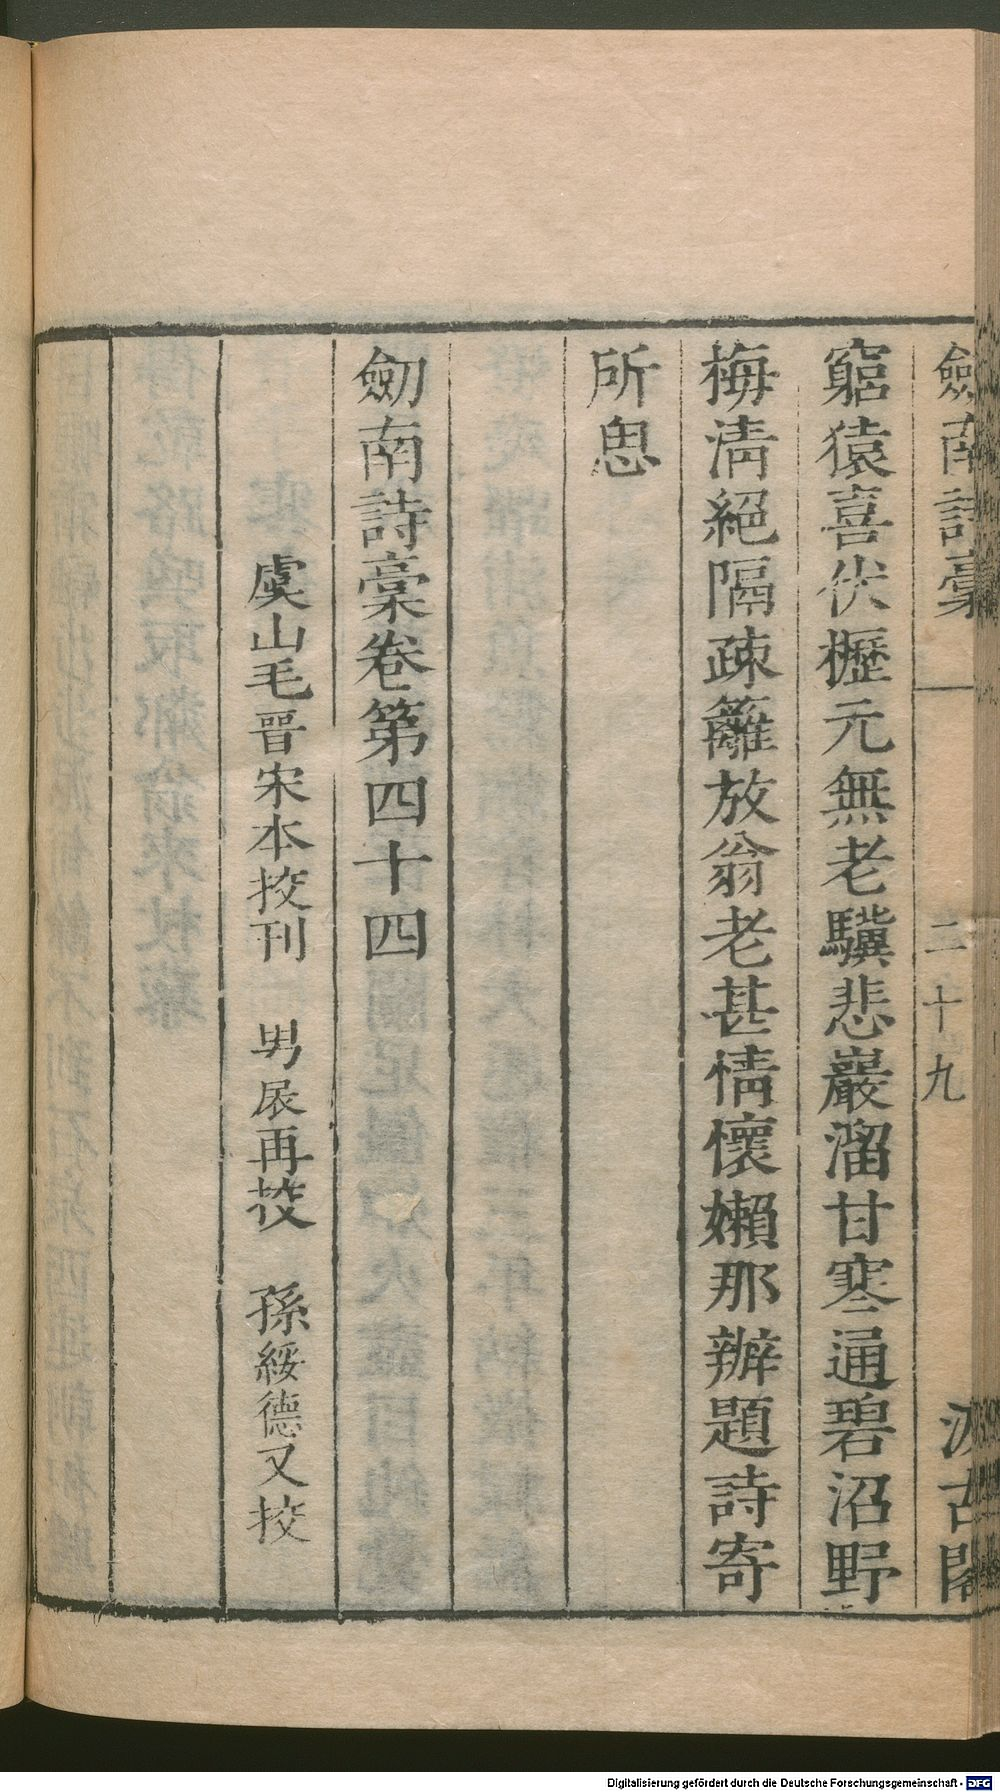 劍南詩稾
二十九
汲古閣
窮猿喜伏櫪元無老驥悲巖溜甘寒通碧沼野
梅淸絕隔疎籬放翁老甚情懷嬾那辦題詩寄
所思
劒南詩稾卷第四十四
虞山毛晉宋本挍刊 男扆再挍 孫綏德又挍
Digitalisierung gefördert durch die Deutsche Forschungsgemeinschaft - DFG